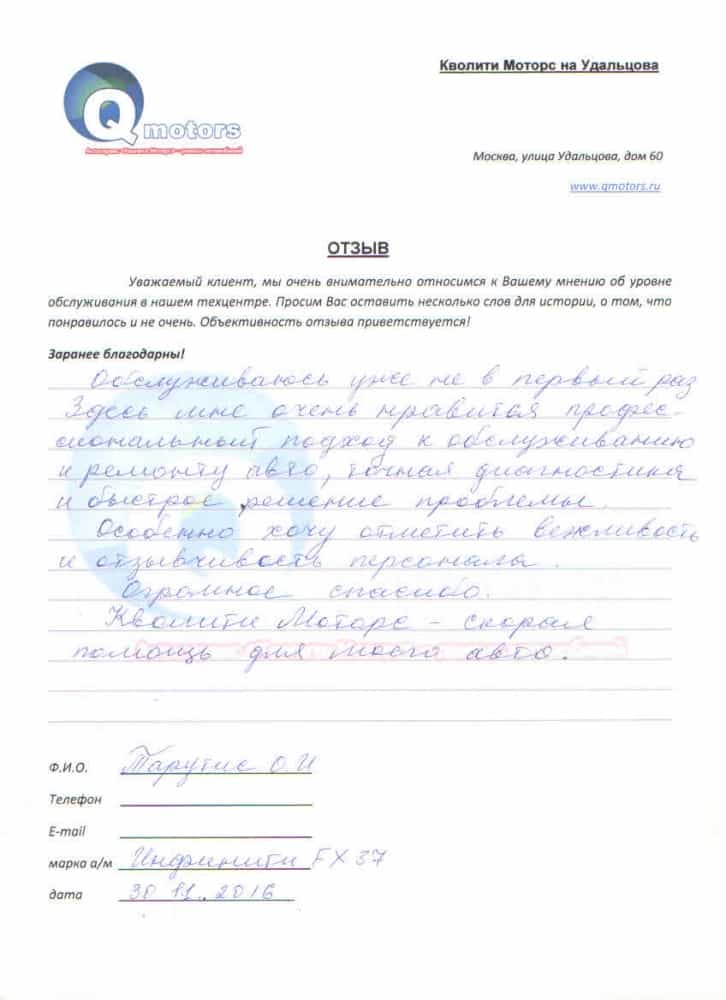 Кволити Моторс на Удальцова
Q motors
Москва, улица Удальцова, дом 60
www.qmotors.ru
ОТЗЫВ
Уважаемый клиент, мы очень внимательно относимся к Вашему мнению об уровне
обслуживания в нашем техцентре. Просим Вас оставить несколько слов для истории, о том, что
понравилось и не очень. Объективность отзыва приветствуется!
Заранее благодарны!
Обслуживаюсь уже не в первый раз
Здесь мне очень нравится профес-
сиональный подход к обслуживанию
и ремонту авто, точная диагностика
и быстрое решение проблемы.
Особенно хочу отметить вежливость
и отзывчивость персонала.
Огромное спасибо.
Кволити Моторс - скорая
помощь для моего авто.
Ф.И.О. Тарутис О.И
Телефон
E-mail
марка а/м Инфинити FX 37
дата 30 11. 2016